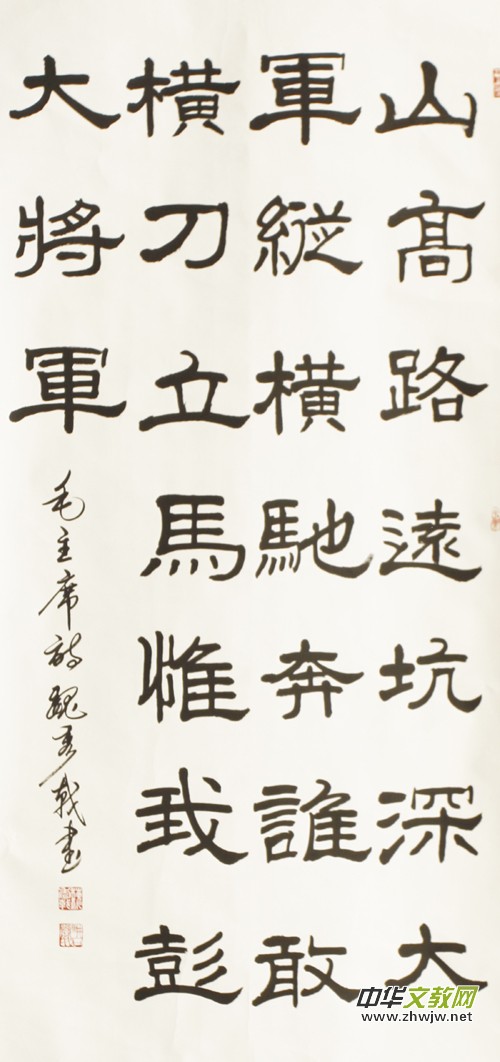 山高路遠坑深大
軍縱横馳奔誰敢
横刀立馬惟我彭
大將軍
毛主席詩魏書
中华文教网
www.zhwjw.net